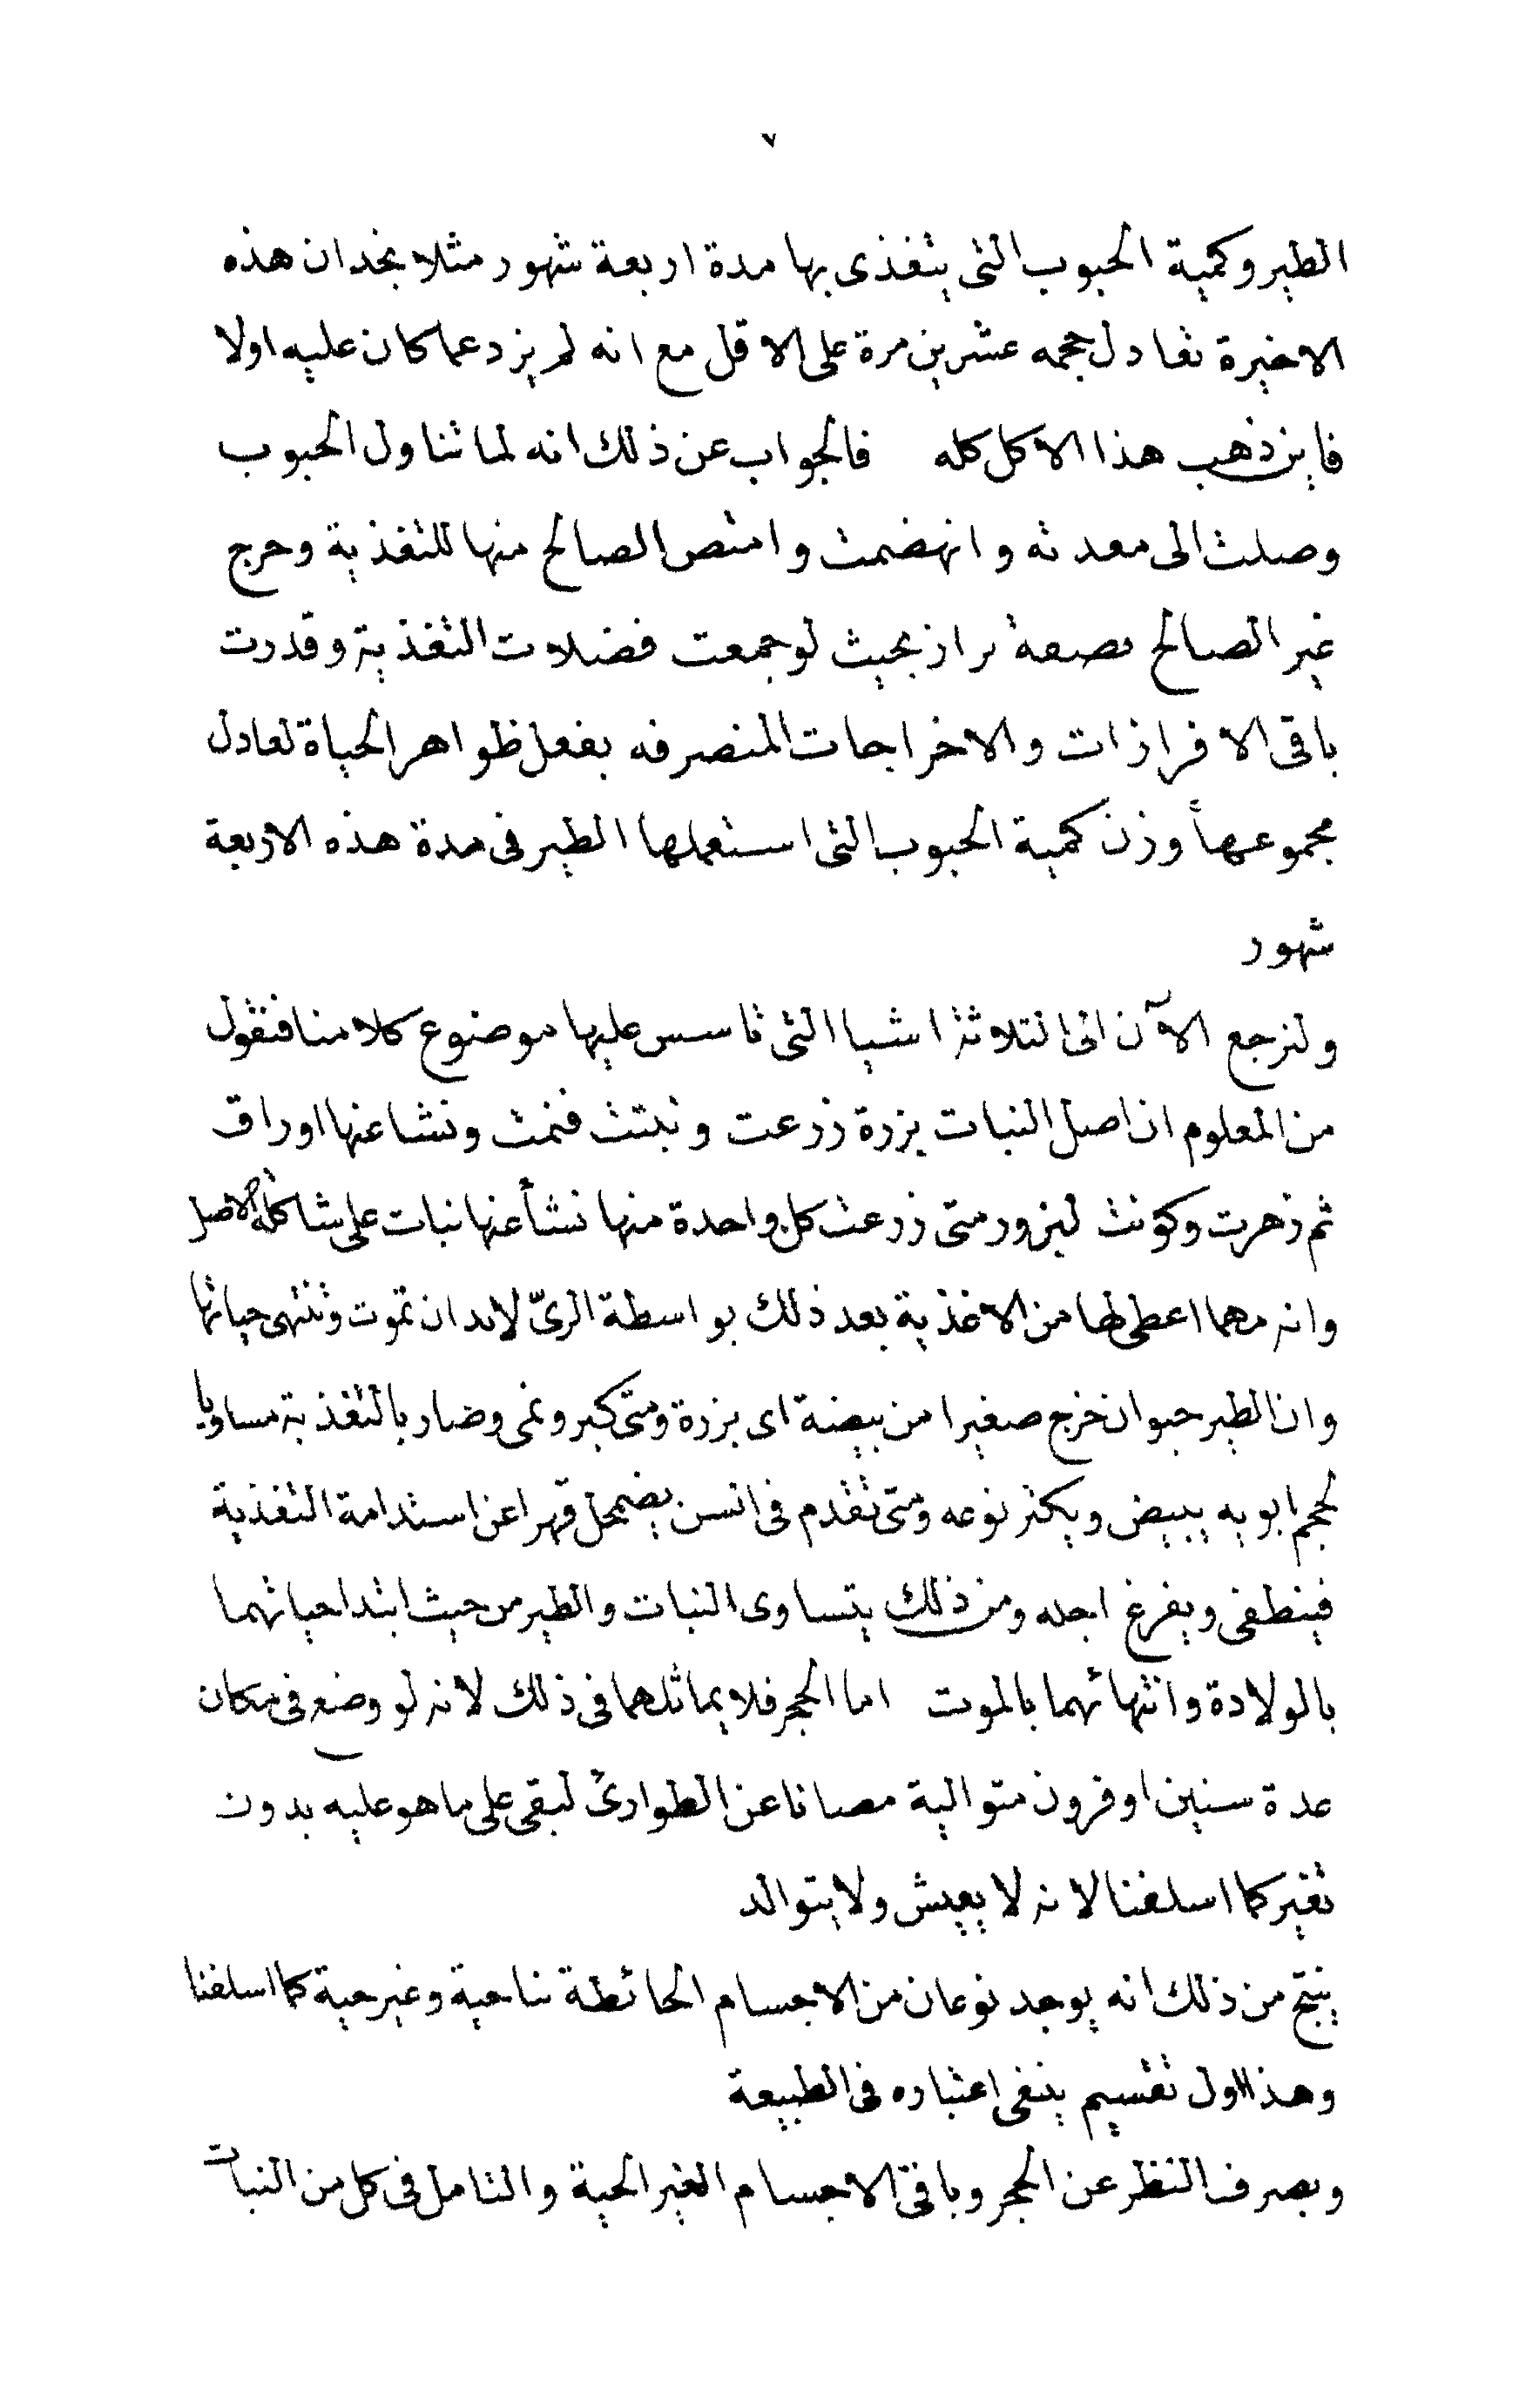 ٧
الطير وكمية الحبوب التى يتغذى بها مدة اربعة شهور مثلا نجد ان هذه
الاخيرة تعادل حجمه عشرين مرة على الاقل مع انه لم يزد عما كان عليه اولا
فاين ذهب هذا الاكل كله فالجواب عن ذلك انه لما تناول الحبوب
وصلت الى معدته وانهضمت وامتص الصالح منها للتغذية وخرج
غير الصالح بصفة براز بحيث لو جمعت فضلات التغذية وقدرت
باقى الافرازات والاخراجات المنصرفه بفعل ظواهر الحياة لعادل
مجموعها وزن كمية الحبوب التى استعملها الطير فى مدة هذه الاربعة
شهور
ولنرجع الآن الى التلاثة اشيا التى تاسس عليها موضوع كلامنا فنقول
من المعلوم ان اصل النبات بزرة زرعت ونبتت فنمت ونشا عنها اوراق
ثم زهرت وكونت لبزور متى زرعت كل واحدة منها نشأ عنها نبات على شاكلة الاصل
وانه مهما اعطى لها من الاغذية بعد ذلك بواسطة الرىّ لابد ان تموت وتنتهى حياتها
وان الطير حيوان خرج صغيرا من بيضة اى بزرة ومتى كبر ونمى وضار بالتغذية مساويا
لحجم ابويه يبيض ويكثر نوعه ومتى تقدم فى السن يضمحل قهرا عن استدامة التغذية
فينطفى ويفرغ اجله ومن ذلك يتساوى النبات والطير من حيث ابتدا حياتهما
بالولادة وانتهائهما بالموت اما الحجر فلا يماثلهما فى ذلك لانه لو وضع فى مكان
عدة سنين او قرون متوالية مصانا عن الطوارئ لبقى على ما هو عليه بدون
تغير كما اسلفنا لانه لا يعيش ولا يتوالد
ينتج من ذلك انه يوجد نوعان من الاجسام الحائطة بنا حية وغير حية كما اسلفنا
وهذا اول تقسيم ينغى اعتباره فى الطبيعة
وبصرف النظر عن الحجر وباقى الاجسام الغير الحية والتامل فى كل من النبات